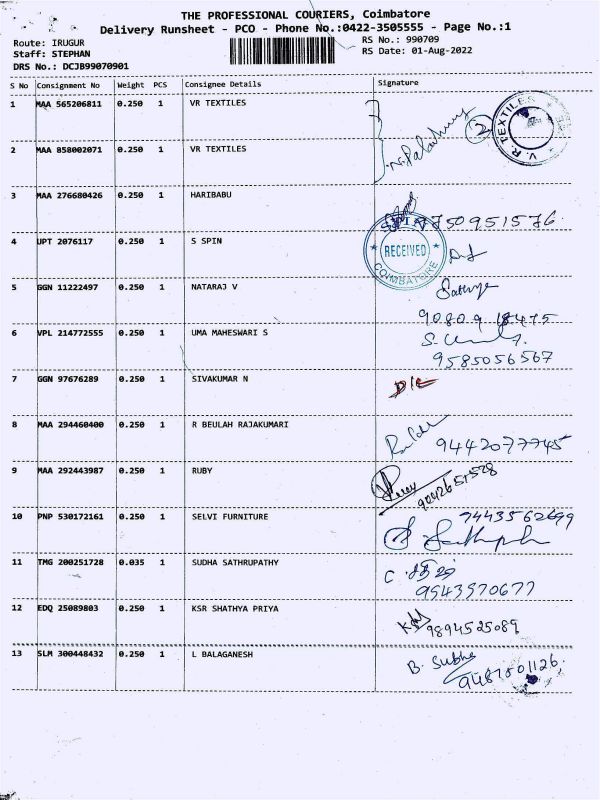 THE PROFESSIONAL COURIERS, Coimbatore
Delivery Runsheet - PCO - Phone No.:0422-3505555 - Page No.:1
Route: IRUGUR
RS No.: 990709
Staff: STEPHAN
RS Date: 01-Aug-2022
DRS No.: DCJB99070901
S No Consignment No Weight PCS Consignee Details Signature
1 MAA 565206811 0.250 1 VR TEXTILES
2 V.R.TEXTILES
2 MAA 858002071 0.250 1 VR TEXTILES
3 MAA 276680426 0.250 1 HARIBABU
SPIN
4 UPT 2076117 0.250 1 S SPIN
RECEIVED
COIMBATORE
5 GGN 11222497 0.250 1 NATARAJ V
6 VPL 214772555 0.250 1 UMA MAHESWARI S
9585056567
7 GGN 97676289 0.250 1 SIVAKUMAR N
D/L
8 MAA 294460400 0.250 1 R BEULAH RAJAKUMARI
9442077745
9 MAA 292443987 0.250 1 RUBY
10 PNP 530172161 0.250 1 SELVI FURNITURE
7443562699
11 TMG 200251728 0.035 1 SUDHA SATHRUPATHY
9543570677
12 EDQ 25089803 0.250 1 KSR SHATHYA PRIYA
9894525089
13 SLM 300448432 0.250 1 L BALAGANESH
B. Subha